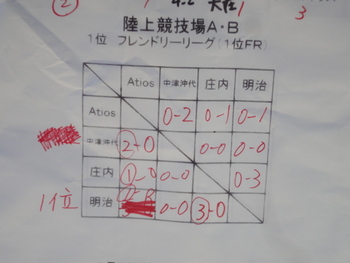 ② 1 4-2 大在 1
3
陸上競技場A・B
1位 フレンドリーリーグ(1位FR)
Atios 中津沖代 庄内 明治
Atios 0-2 0-1 0-1
中津沖代 ②-0 0-0 0-0
庄内 ①-0 0-0 0-3
1位 明治 ①-0 0-0 ③-0